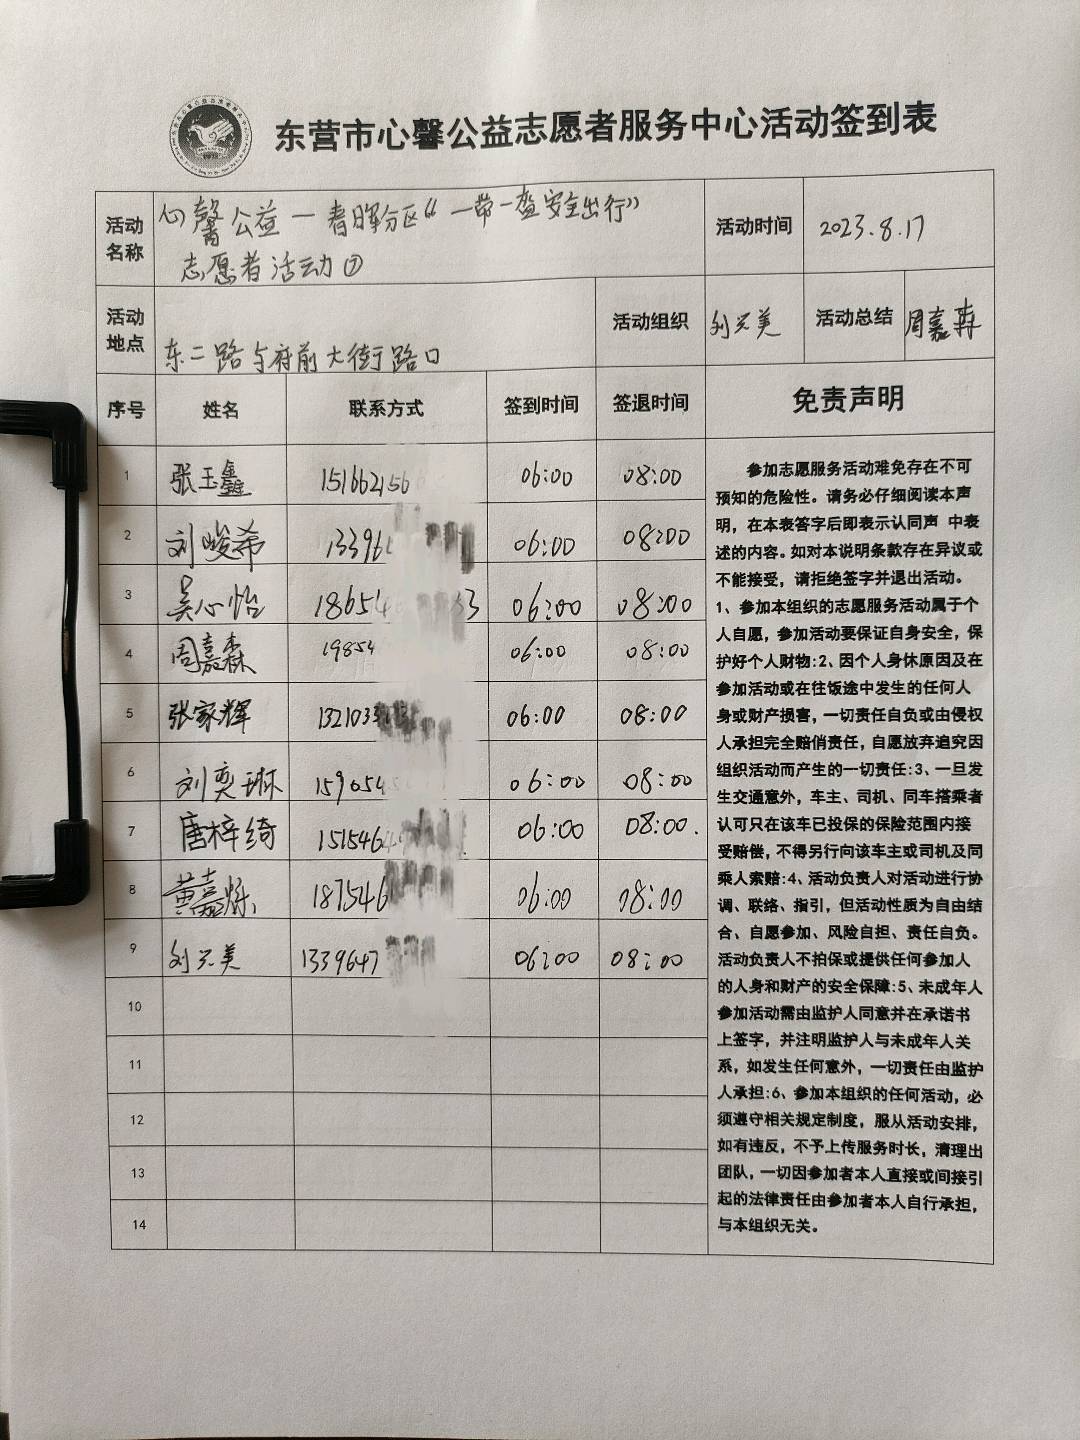 东营市心馨公益志愿者服务中心活动签到表
活动名称 心馨公益一春晖分区“一带一盔安全出行” 活动时间 2023.8.17
志愿者活动⑦
活动地点 东二路与府前大街路口 活动组织 刘兴美 活动总结 周嘉森
序号 姓名 联系方式 签到时间 签退时间 免责声明
1 张玉鑫 151662156 06:00 08:00
2 刘峻希 13396 06:00 08:00
3 吴心怡 18654 63 06:00 08:00
4 周嘉森 19854 06:00 08:00
5 张家辉 132103 06:00 08:00
6 刘奕琳 159054 06:00 08:00
7 唐梓绮 1515464 06:00 08:00.
8 黄嘉烁 187546 06:00 08:00
9 刘兴美 1339647 06:00 08:00
10
11
12
13
14
参加志愿服务活动难免存在不可
预知的危险性。请务必仔细阅读本声
明，在本表签字后即表示认同声 中表
述的内容。如对本说明条款存在异议或
不能接受，请拒绝签字并退出活动。
1、参加本组织的志愿服务活动属于个
人自愿，参加活动要保证自身安全，保
护好个人财物:2、因个人身休原因及在
参加活动或在往饭途中发生的任何人
身或财产损害，一切责任自负或由侵权
人承担完全赔俏责任，自愿放弃追究因
组织活动而产生的一切责任:3、一旦发
生交通意外，车主、司机、同车搭乘者
认可只在该车已投保的保险范围内接
受赔偿，不得另行向该车主或司机及同
乘人索赔:4、活动负责人对活动进行协
调、联络、指引，但活动性质为自由结
合、自愿参加、风险自担、责任自负。
活动负责人不拍保或提供任何参加人
的人身和财产的安全保障:5、未成年人
参加活动需由监护人同意并在承诺书
上签字，并注明监护人与未成年人关
系，如发生任何意外，一切责任由监护
人承担:6、参加本组织的任何活动，必
须遵守相关规定制度，服从活动安排，
如有违反，不予上传服务时长，清理出
团队，一切因参加者本人直接或间接引
起的法律责任由参加者本人自行承担，
与本组织无关。